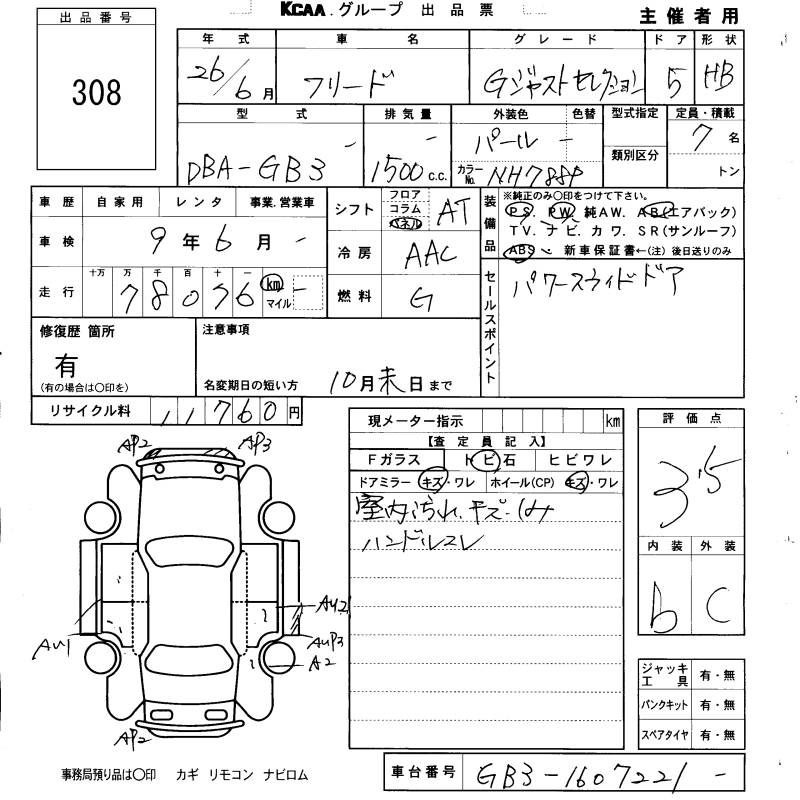 KCAA.グループ 出品票
主催者用
出品番号
308
年式 車名 グレード ドア 形状
26/6月 フリード Gジャストセレクション 5 HB
型式 排気量 外装色 色替 型式指定 定員・積載
DBA-GB3 - 1500c.c. - パール - 7名
カラーNo. NH788P
類別区分
トン
車歴 自家用 レンタ 事業.営業車
車検 9年6月 -
走行 十万 万 千 百 十 一
78076 km マイル -
シフト フロア コラム パネル AT
冷房 AAC
燃料 G
装備品
※純正のみ〇印をつけて下さい。
PS. PW. 純AW. AB(エアバック)
TV. ナビ. カワ. SR(サンルーフ)
ABS 新車保証書←(注) 後日送りのみ
セールスポイント
パワースライドドア
修復歴 箇所
有
(有の場合は〇印を)
注意事項
名変期日の短い方 10月末日まで
リサイクル料 11760円
現メーター指示 km
【査定員記入】
Fガラス トビ石 ヒビワレ
ドアミラー キズ・ワレ ホイール(CP) キズ・ワレ
室内汚れ.キズ.シミ
ハンドルスレ
評価点
3.5
内装 外装
b C
AP2 AP3
AU1
AU21
AUP3
A2
AP2
ジャッキ工具 有・無
パンクキット 有・無
スペアタイヤ 有・無
事務局預り品は〇印 カギ リモコン ナビロム
車台番号 GB3-1607221 -